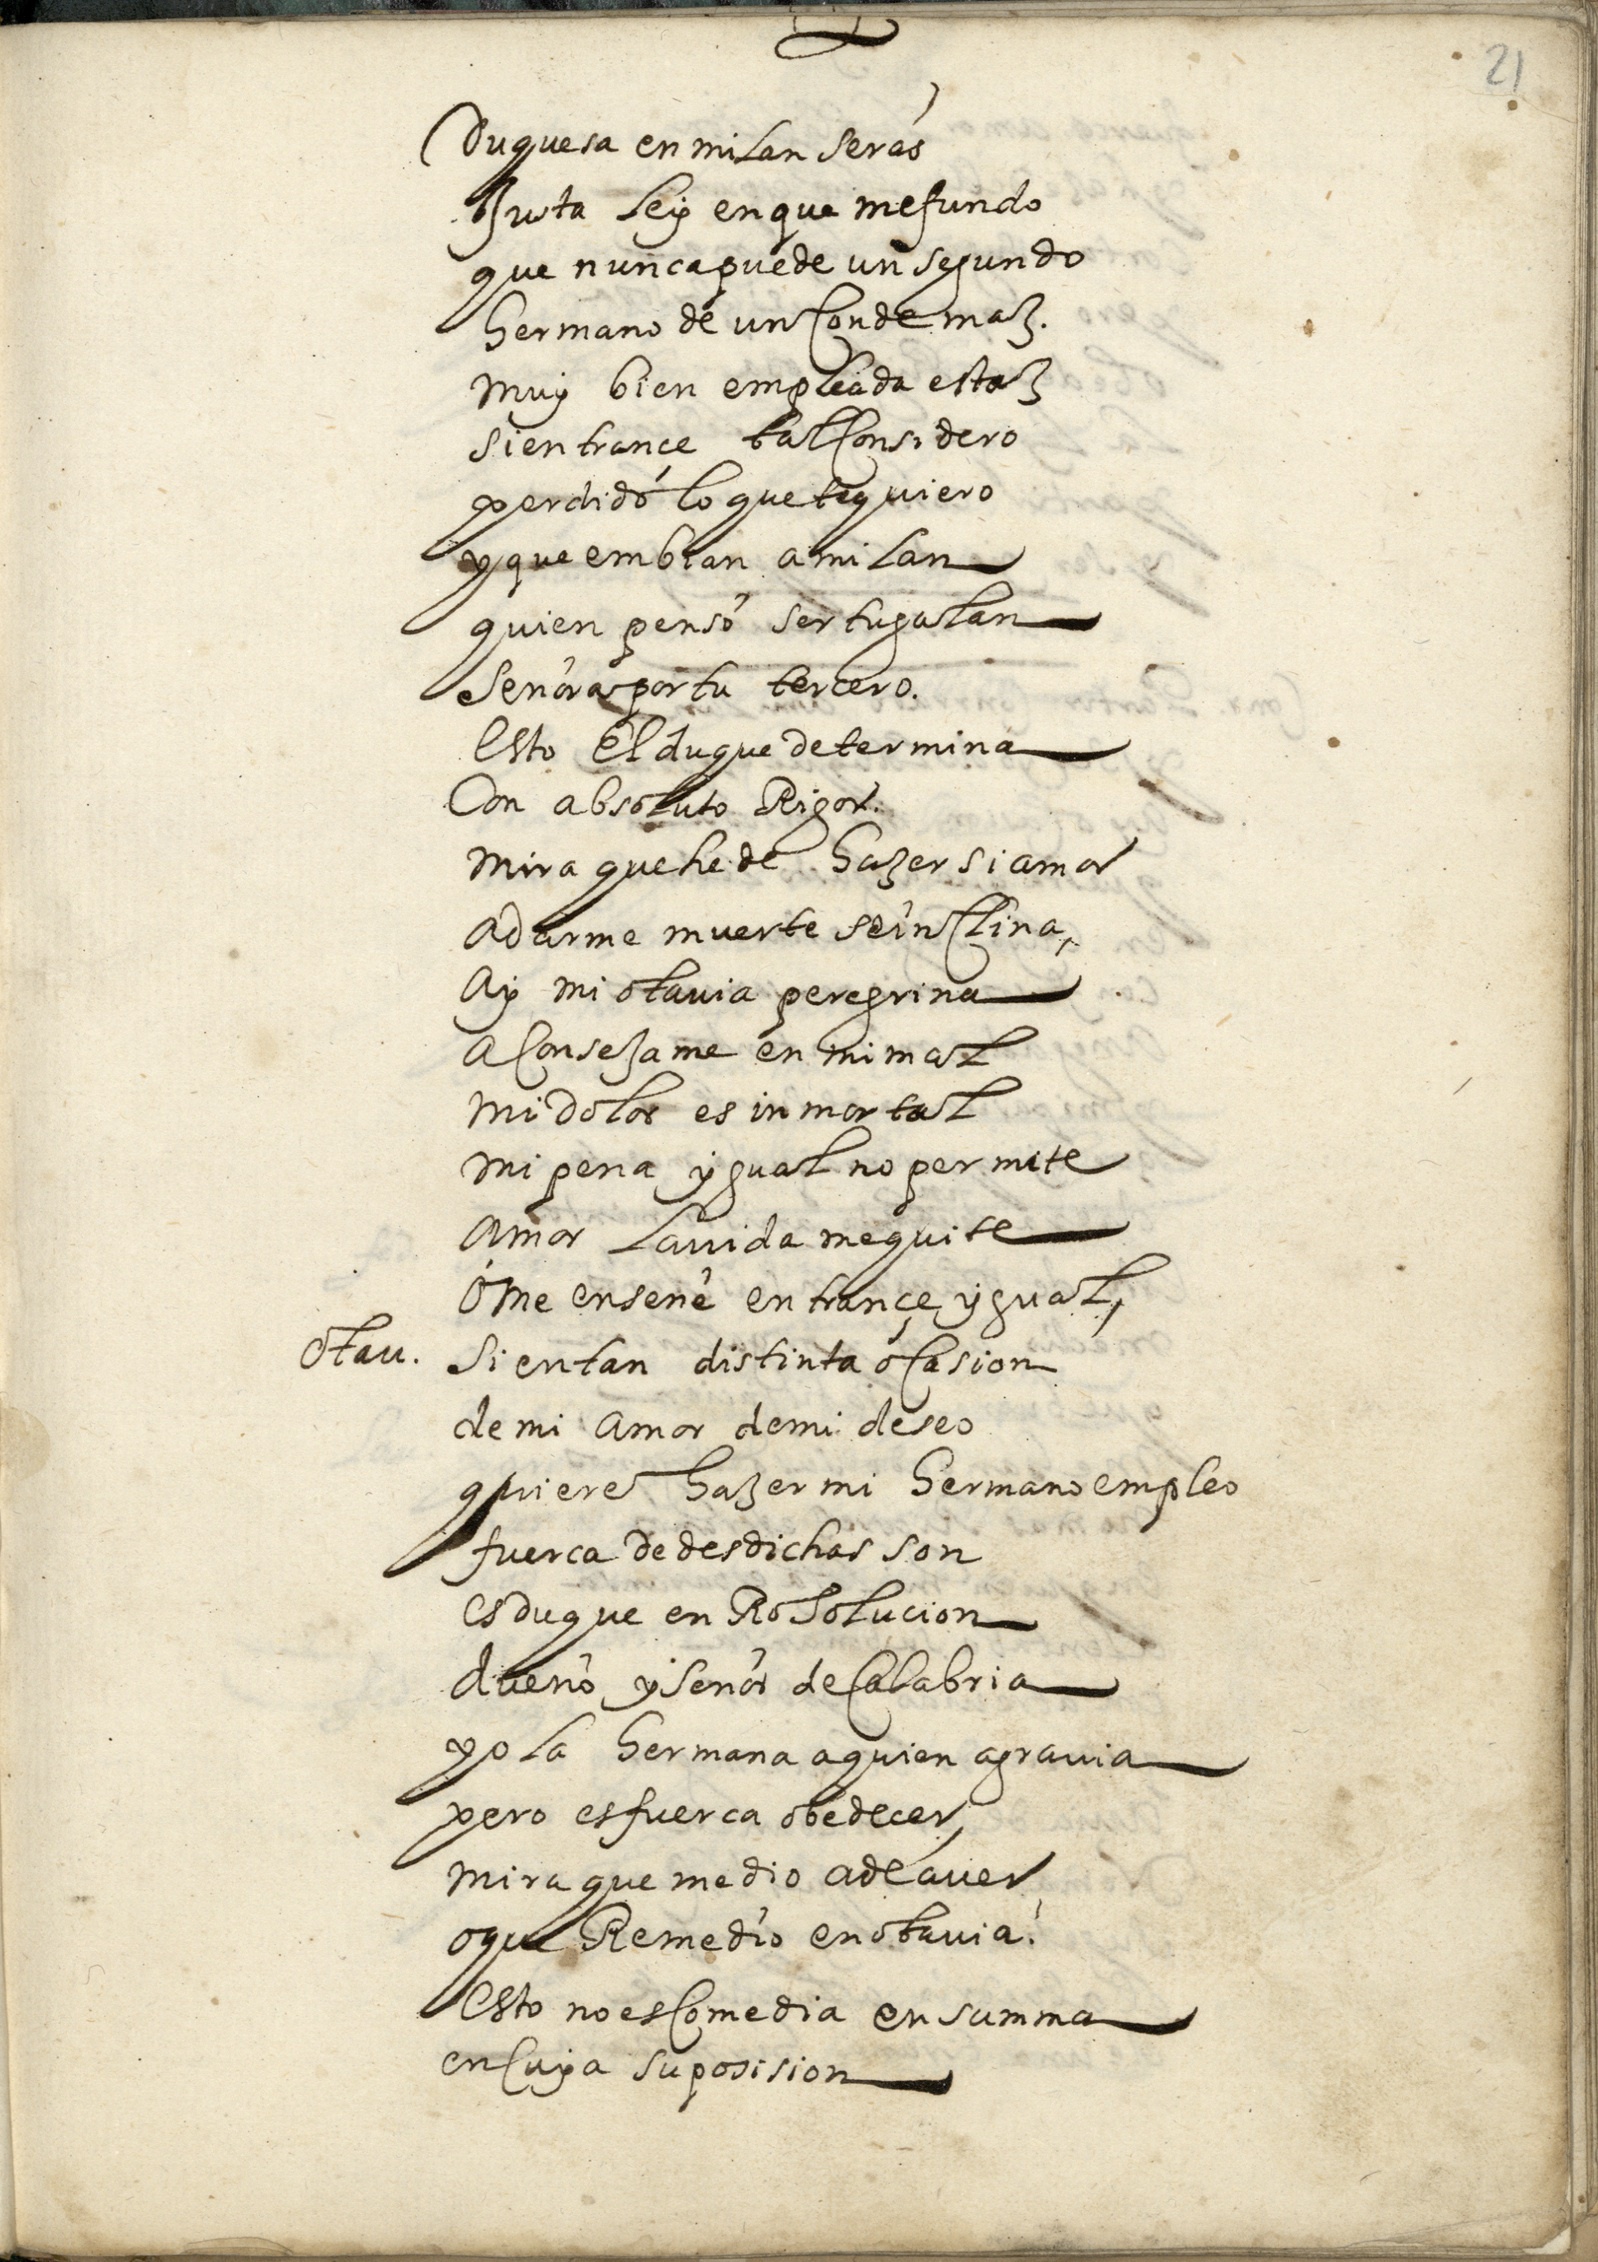 21
Duquesa en milan serás
Justa ley en que me fundo
que nunca puede un segundo
hermano de un Conde maz.
muy bien empleada estaz
si en trance tal Considero
perdidó lo que te quiero
y que embian a milan
quien pensó ser tu galan
señora por tu tercero.
Esto El duque determina
Con absoluto Rigor.
mira que he de hazer si amor
a darme muerte se inClina,
Ay mi otauia peregrina
aConsejame en mi mal
mi dolor es inmortal
mi pena ygual no permite
Amor la uida me quite
ó me enseñe en trançe ygual,
otau. Si en tan distinta óCasion
de mi Amor de mi deseo
quiere hazer mi hermano empleo
fuerca de desdichas son
es duque en Rosolucion
dueño y señor de Calabria
yo la hermana a quien agrauia
pero es fuerca obedecer,
mira que medio a de auer
o que Remedio en otauia.
Esto no es Comedia en summa
en Cuya suposision